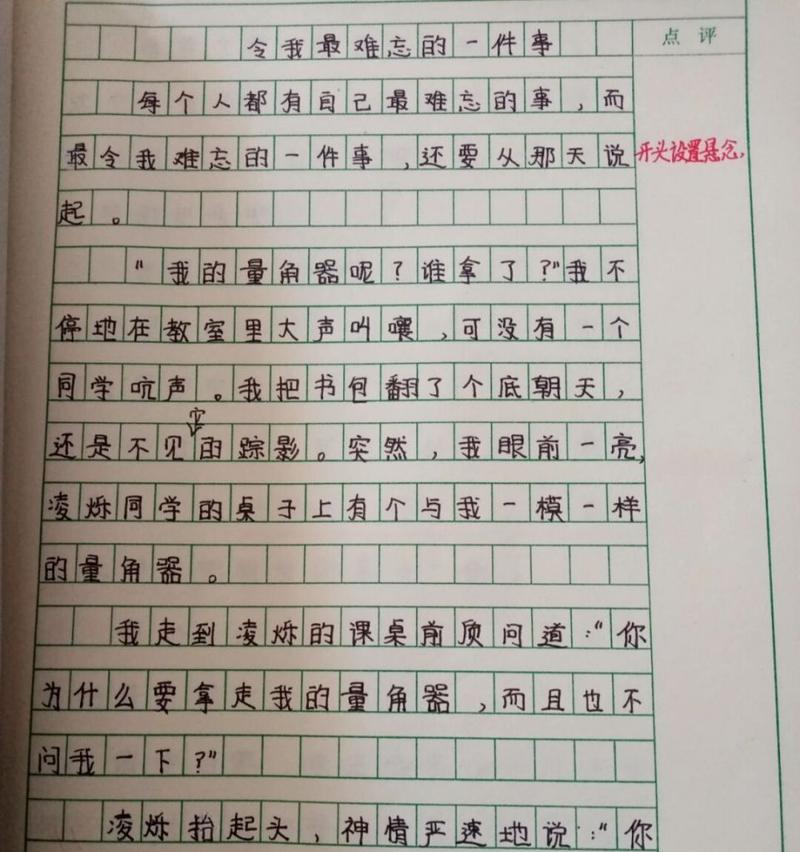 令我最难忘的一件事
点评
每个人都有自己最难忘的事，而
最令我难忘的一件事，还要从那天说
开头设置悬念，
起。
“我的量角器呢？谁拿了？”我不
停地在教室里大声叫嚷，可没有一个
同学吭声。我把书包翻了个底朝天，
它
还是不见的踪影。突然，我眼前一亮，
凌烁同学的桌子上有个与我一模一样
的量角器。
我走到凌烁的课桌前质问道：“你
为什么要拿走我的量角器，而且也不
问我一下？”
凌烁抬起头，神情严速地说：“你